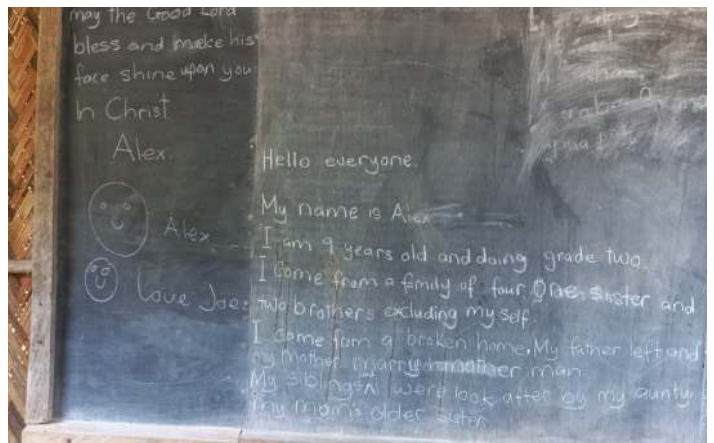 may the Good Lord
bless and make his
face shine upon you
In Christ
Alex.
Alex
Love Joe
Hello everyone.
My name is Alex
I am 9 years old and doing grade two.
I Come from a fmily of four One, sister and
two brothers excluding my self.
I come fom a broken home, My father left and
my mother marry another man.
My siblings were look after by my aunty
my mom's older sister.